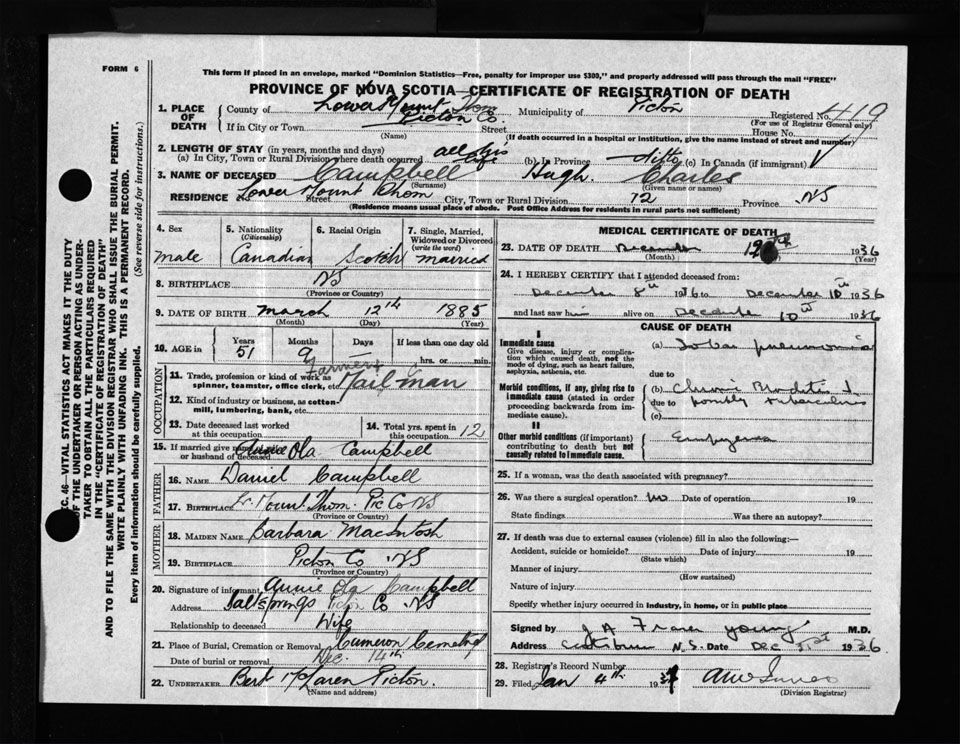 FORM 6
This form if placed in an envelope, marked "Dominion Statistics—Free, penalty for improper use $300," and properly addressed will pass through the mail "FREE"
PROVINCE OF NOVA SCOTIA—CERTIFICATE OF REGISTRATION OF DEATH
SEC. 46—VITAL STATISTICS ACT MAKES IT THE DUTY
OF THE UNDERTAKER OR PERSON ACTING AS UNDER-
TAKER TO OBTAIN ALL THE PARTICULARS REQUIRED
IN THE "CERTIFICATE OF REGISTRATION OF DEATH"
AND TO FILE THE SAME WITH THE DIVISION REGISTRAR WHO SHALL ISSUE THE BURIAL PERMIT.
WRITE PLAINLY WITH UNFADING INK. THIS IS A PERMANENT RECORD.
Every item of information should be carefully supplied. (See reverse side for instructions.)
1. PLACE OF DEATH
County of Lower Mount Thom Pictou Co. Municipality of Pictou Registered No. 4119
(For use of Registrar General only)
If in City or Town Street House No.
(Name) (If death occurred in a hospital or institution, give the name instead of street and number)
2. LENGTH OF STAY (in years, months and days)
(a) In City, Town or Rural Division where death occurred all his life (b) In Province ditto (c) In Canada (if immigrant)
3. NAME OF DECEASED Campbell Hugh Charles
(Surname) (Given name or names)
RESIDENCE No. Lower Mount Thom Street City, Town or Rural Division 12 Province NS
(Residence means usual place of abode. Post Office Address for residents in rural parts not sufficient)
4. Sex 5. Nationality (Citizenship) 6. Racial Origin 7. Single, Married, Widowed or Divorced (write the word)
male Canadian Scotch married
8. BIRTHPLACE NS
(Province or Country)
9. DATE OF BIRTH March 12th 1885
(Month) (Day) (Year)
10. AGE in Years Months Days If less than one day old
51 9 — hrs. or min.
OCCUPATION
11. Trade, profession or kind of work as spinner, teamster, office clerk, etc. Farmer & Mail man
12. Kind of industry or business, as cotton-mill, lumbering, bank, etc.
13. Date deceased last worked at this occupation
14. Total yrs. spent in this occupation 12
15. If married give name of wife or husband of deceased Annie Ola Campbell
FATHER
16. NAME Daniel Campbell
17. BIRTHPLACE L. Mount Thom Pic Co NS
(Province or Country)
MOTHER
18. MAIDEN NAME Barbara MacIntosh
19. BIRTHPLACE Pictou Co NS
(Province or Country)
20. Signature of informant Annie Ola Campbell
Address Saltsprings Pictou Co NS
Relationship to deceased Wife
21. Place of Burial, Cremation or Removal Cameron Cemetery
Date of burial or removal Dec. 14th
22. UNDERTAKER Bert McLaren Pictou
(Name and address)
MEDICAL CERTIFICATE OF DEATH
23. DATE OF DEATH December 1936
(Month) (Year)
24. I HEREBY CERTIFY that I attended deceased from:
December 8th 1936 to December 10th 1936
and last saw him alive on December 10th 1936
CAUSE OF DEATH
I
Immediate cause
Give disease, injury or complication which caused death, not the mode of dying, such as heart failure, asphyxia, asthenia, etc.
(a) Lobar pneumonia
due to
Morbid conditions, if any, giving rise to immediate cause (stated in order proceeding backwards from immediate cause).
(b) Chronic Bronchitis &
due to possibly tuberculosis
(c)
II
Other morbid conditions (if important) contributing to death but not causally related to immediate cause.
Empyema
25. If a woman, was the death associated with pregnancy?
26. Was there a surgical operation? no Date of operation 19
State findings Was there an autopsy?
27. If death was due to external causes (violence) fill in also the following:—
Accident, suicide or homicide? Date of injury 19
(State which)
Manner of injury
(How sustained)
Nature of injury
Specify whether injury occurred in industry, in home, or in public place
Signed by J A Fraser Young M.D.
Address N.S. Date Dec 31st 1936
28. Registrar's Record Number
29. Filed Jan 4th 1937
(Division Registrar)